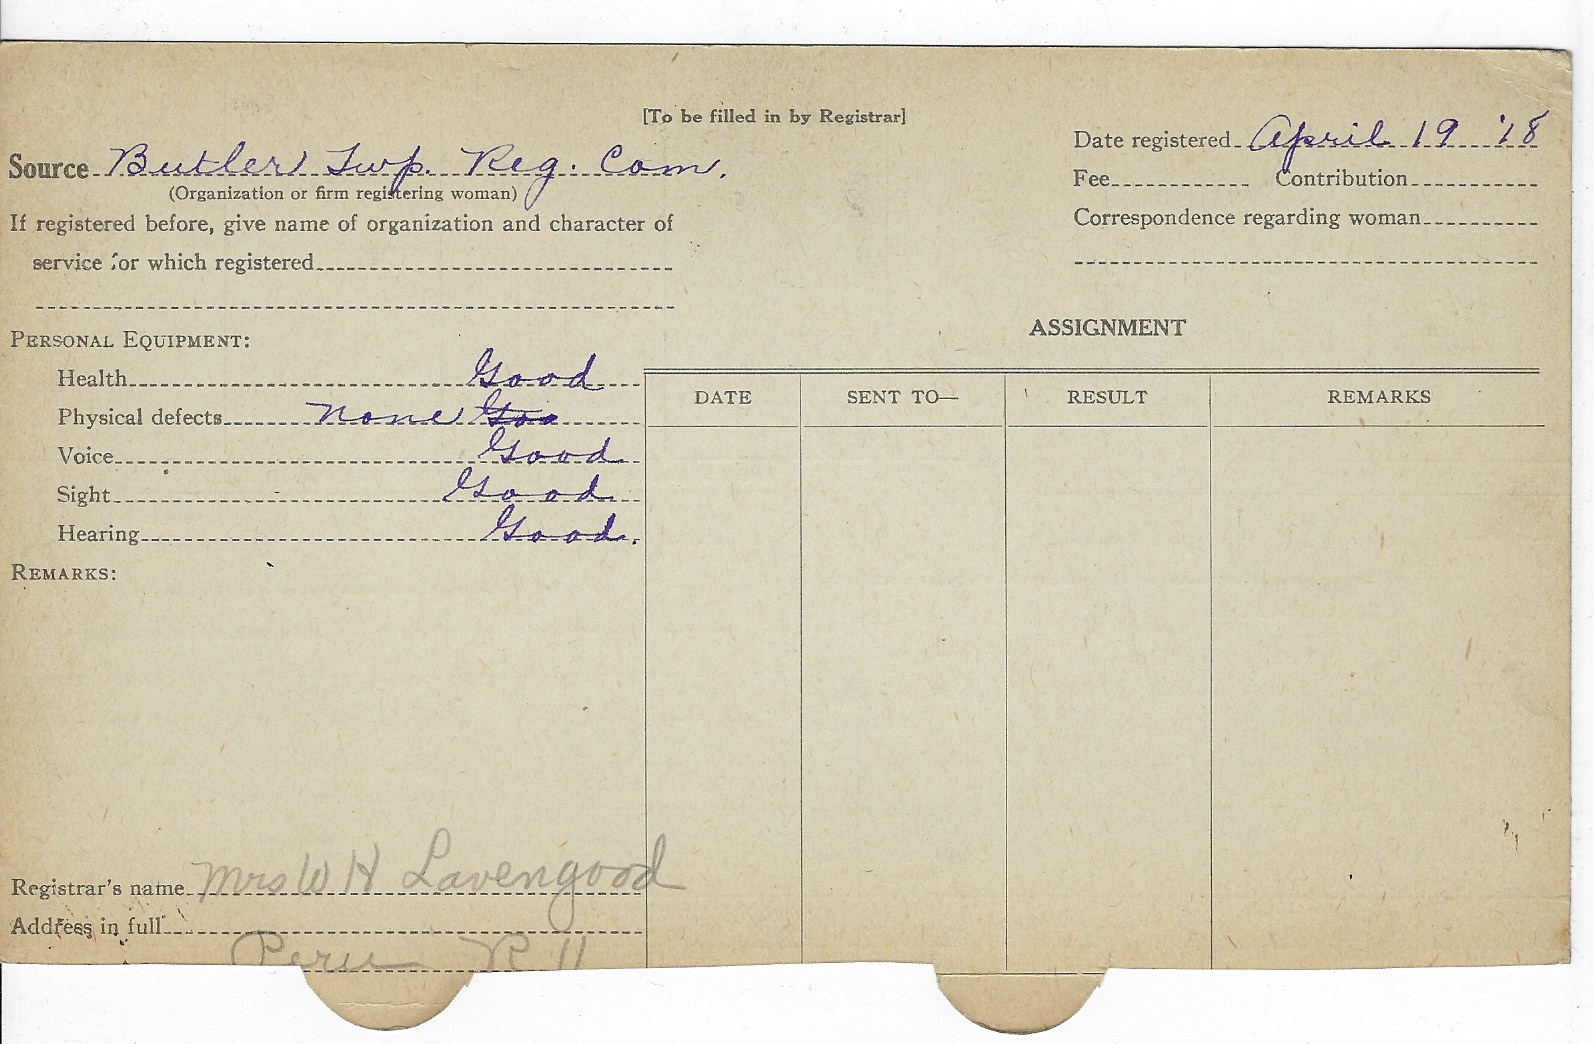 [To be filled in by Registrar]
Source Butler Twp. Reg. Com.
(Organization or firm registering woman)
If registered before, give name of organization and character of
service for which registered
Date registered April 19 '18
Fee Contribution
Correspondence regarding woman
PERSONAL EQUIPMENT:
Health Good
Physical defects none Goo
Voice Good
Sight Good
Hearing Good.
REMARKS:
Registrar's name Mrs W H Lavengood
Address in full
Peru R 11
ASSIGNMENT
DATE SENT TO— RESULT REMARKS